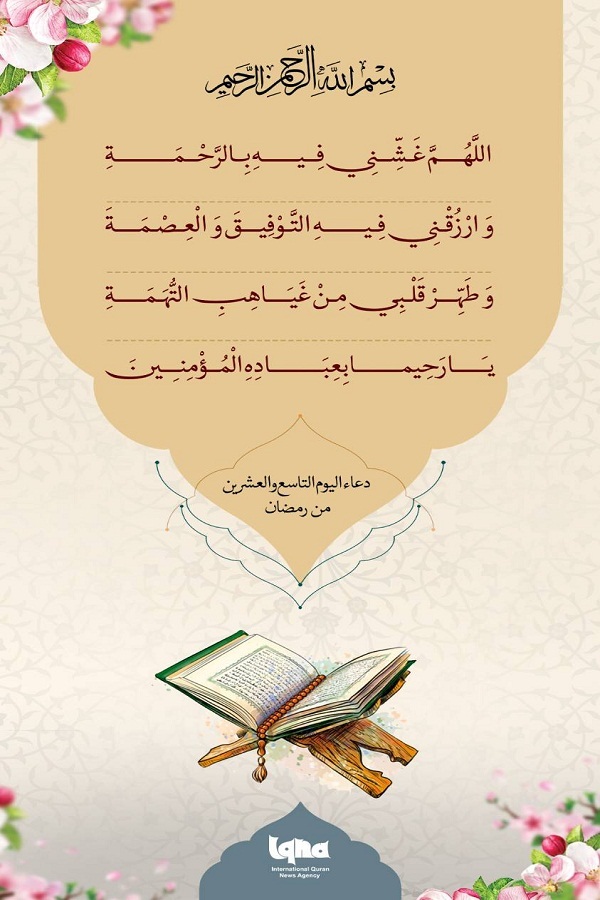 بِسْمِ اللَّهِ الرَّحْمَنِ الرَّحِيمِ
اللَّهُمَّ غَشِّنِي فِيهِ بِالرَّحْمَةِ
وَ ارْزُقْنِي فِيهِ التَّوْفِيقَ وَ الْعِصْمَةَ
وَ طَهِّرْ قَلْبِي مِنْ غَيَاهِبِ التُّهَمَةِ
يَا رَحِيما بِعِبَادِهِ الْمُؤْمِنِينَ
دعاء اليوم التاسع والعشرين
من رمضان
Iqna
International Quran
News Agency